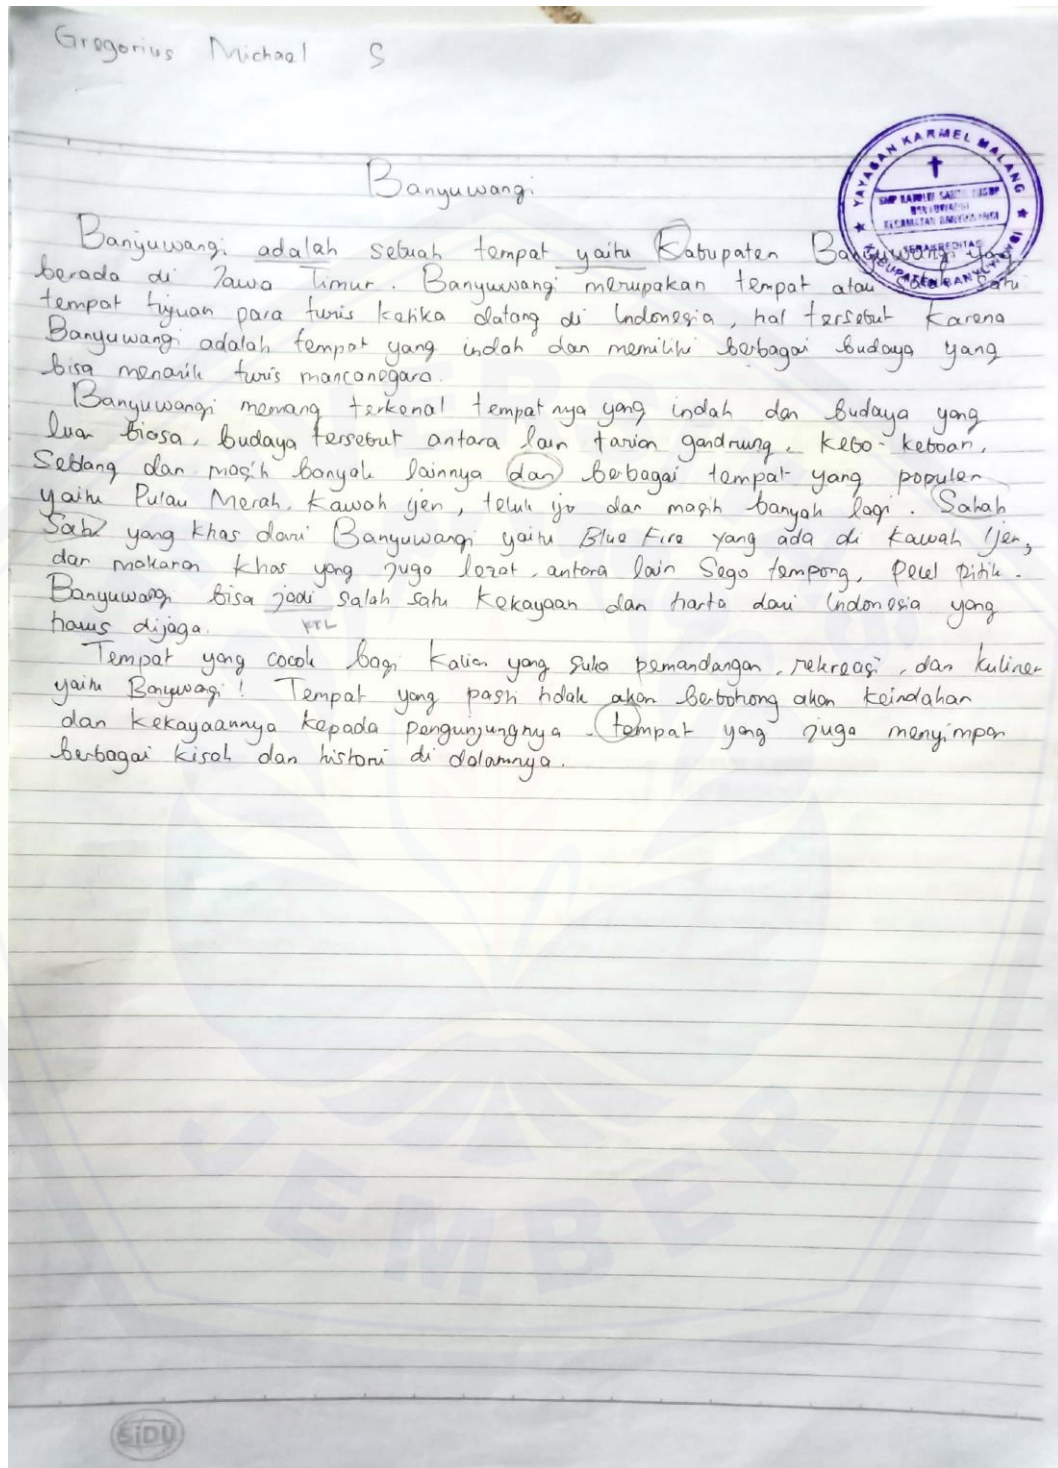 Gregorius Michael S
YAYASAN KARMEL MALANG
KABUPATEN BANYUWANGI
Banyuwangi
Banyuwangi adalah sebuah tempat yaitu Kabupaten Banyuwangi yang
berada di Jawa Timur. Banyuwangi merupakan tempat atau salah satu
tempat tujuan para turis ketika datang di Indonesia, hal tersebut karena
Banyuwangi adalah tempat yang indah dan memiliki berbagai budaya yang
bisa menarik turis mancanegara.
Banyuwangi memang terkenal tempatnya yang indah dan budaya yang
luar biasa, budaya tersebut antara lain tarian gandrung, Kebo-keboan,
Seblang dan masih banyak lainnya dan berbagai tempat yang populer
yaitu Pulau Merah, Kawah ijen, teluk ijo dan masih banyak lagi. Salah
Satu yang khas dari Banyuwangi yaitu Blue Fire yang ada di Kawah Ijen,
dan makanan khas yang juga lezat, antara lain Sego tempong, Pecel Pitik.
Banyuwangi bisa jadi salah satu kekayaan dan harta dari Indonesia yang
harus dijaga.
KTL
Tempat yang cocok bagi Kalian yang suka pemandangan, rekreasi, dan kuliner
yaitu Banyuwagi! Tempat yang pasti tidak akan berbohong akan keindahan
dan kekayaannya kepada pengunjungnya. tempat yang juga menyimpan
berbagai kisah dan histori di dalamnya.
JEMBER
SiDU